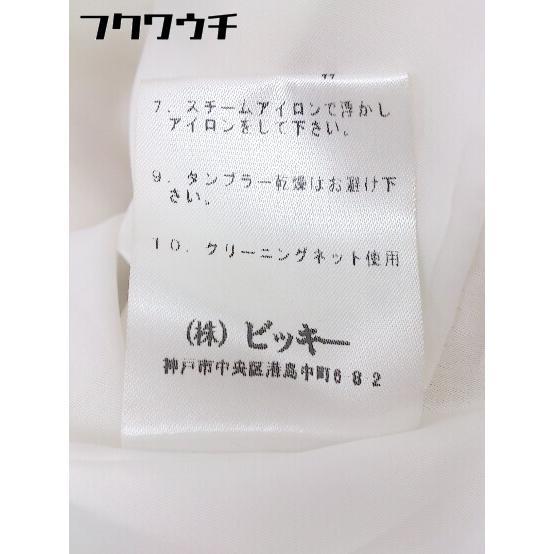 フクワウチ
7. スチームアイロンで浮かし
アイロンをして下さい。
9. タンブラー乾燥はお避け下
さい。
10. クリーニングネット使用
(株) ビッキー
神戸市中央区港島中町682